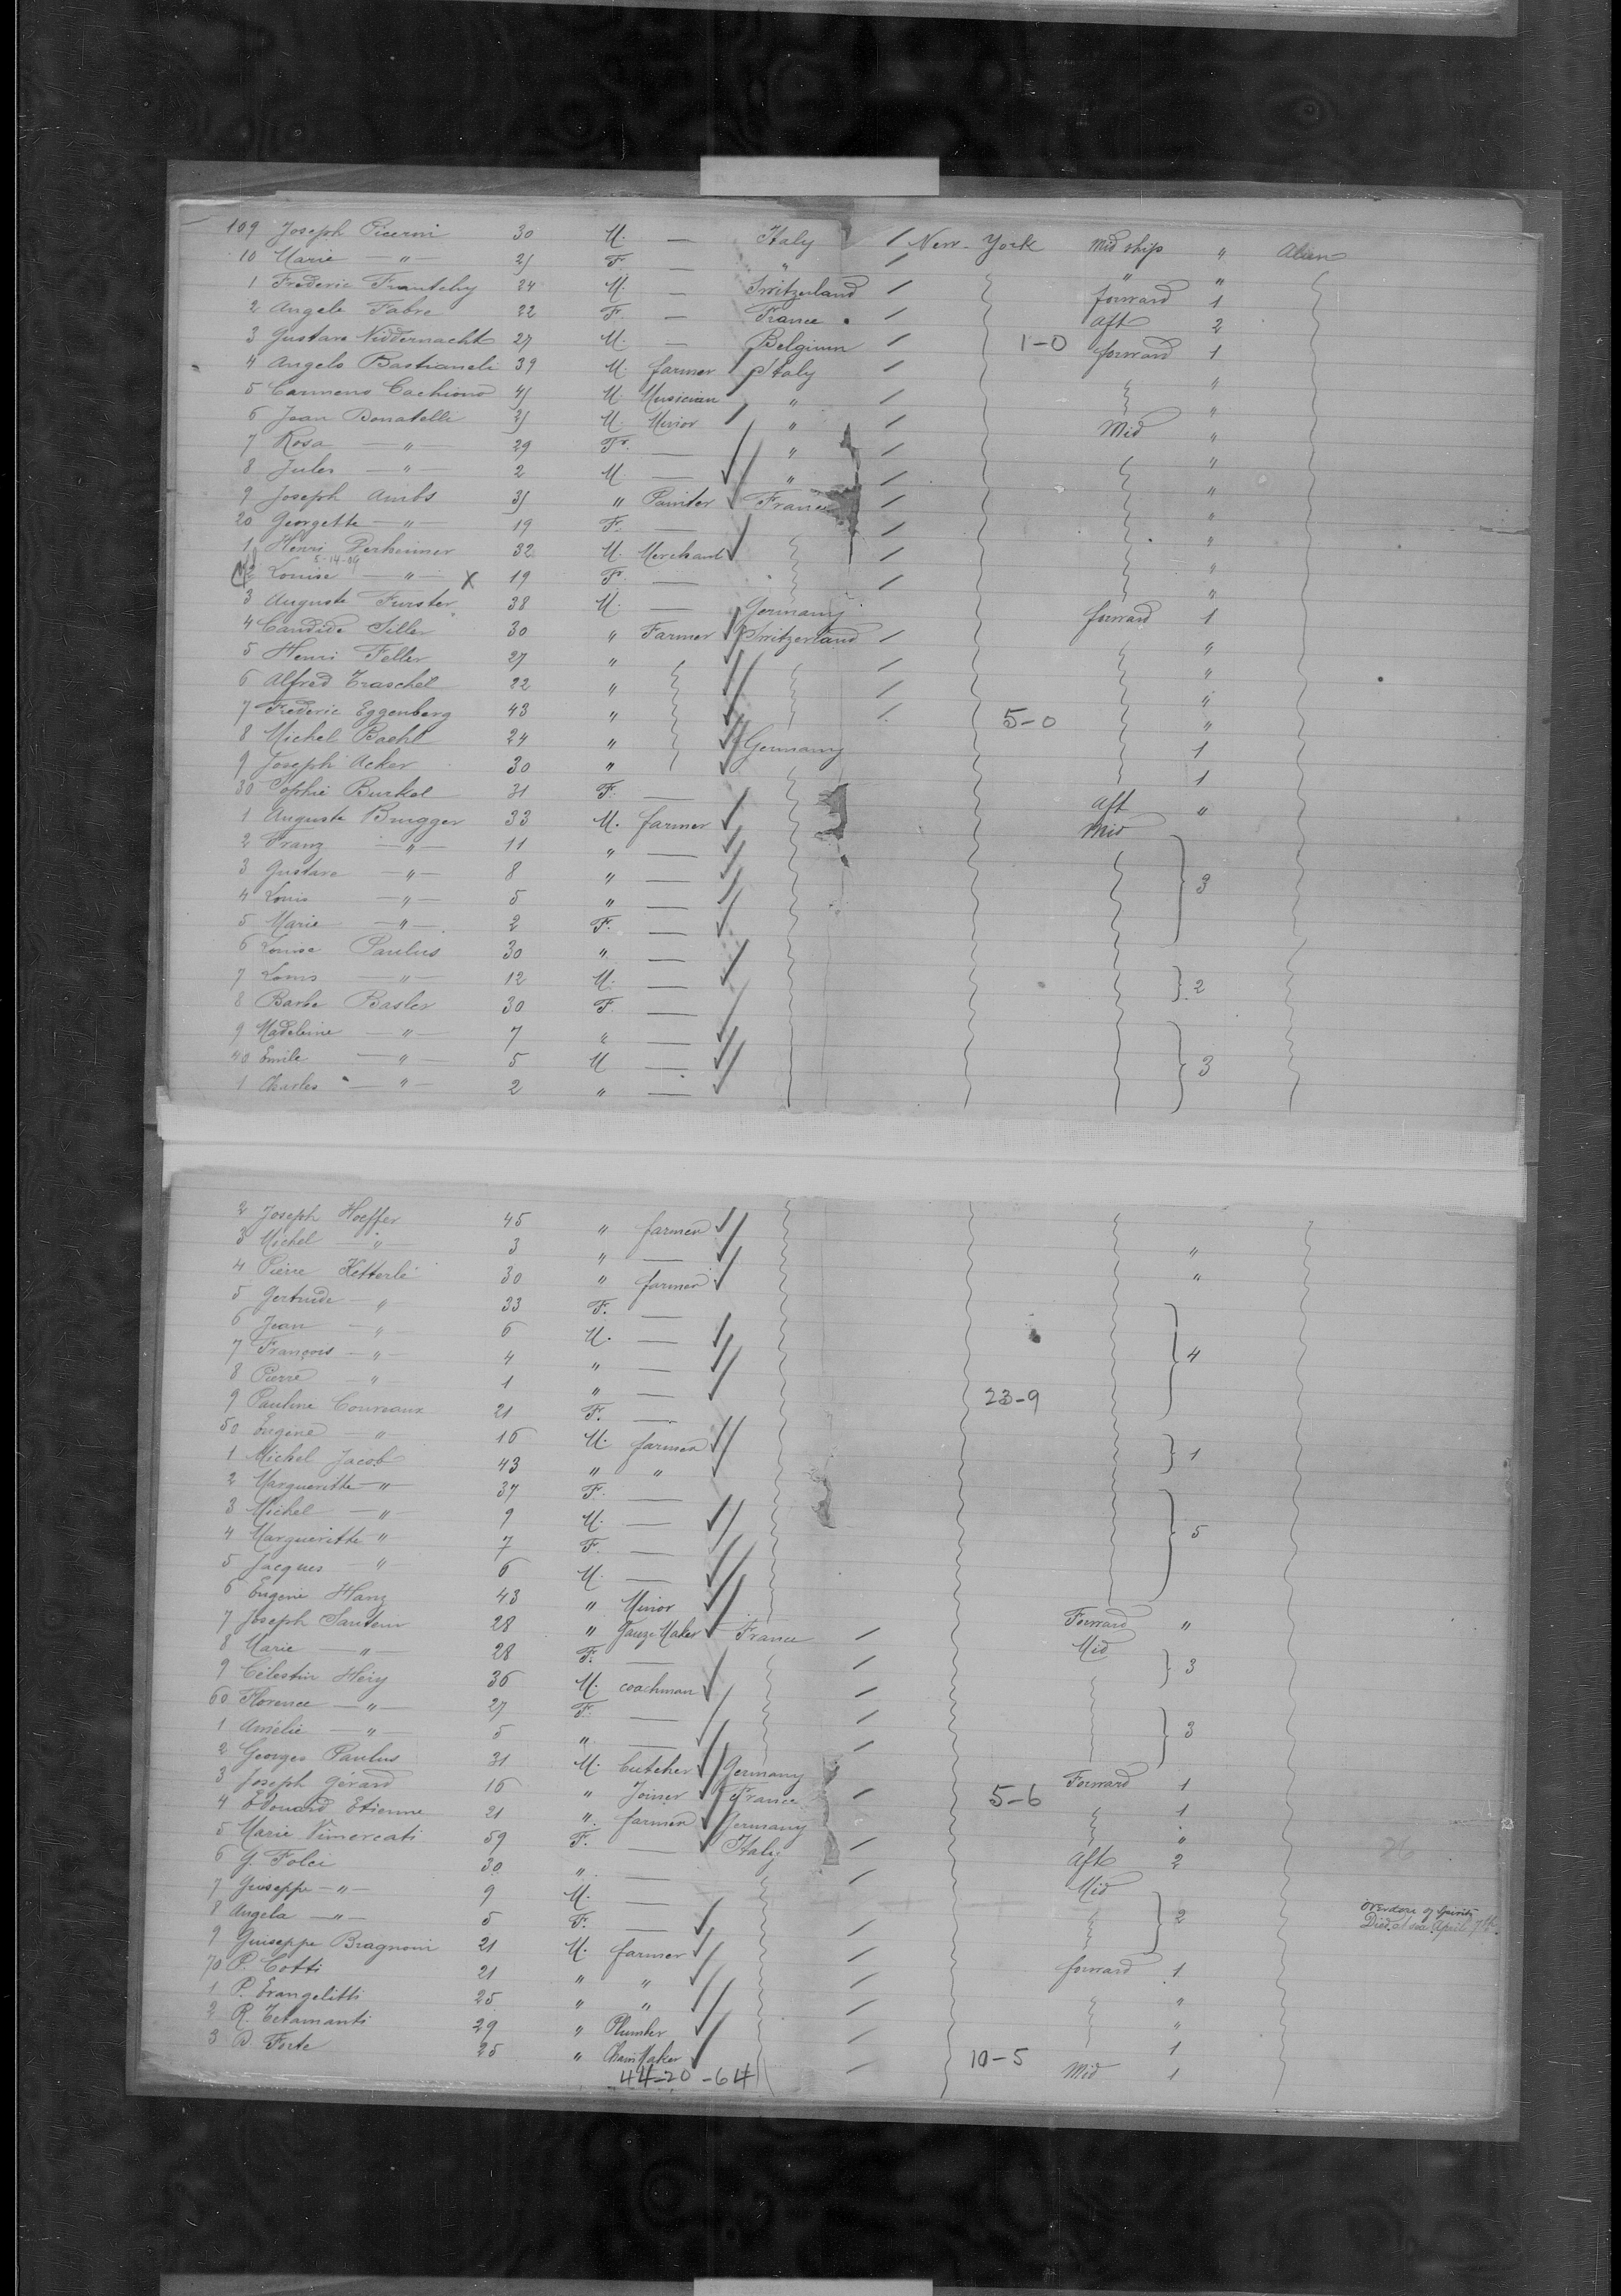 109 Joseph Picerni 30 M. — Italy / New-York Mid ship " Alien
10 Marie — " — 21 F. — " / " "
1 Frederic Frantchy 24 M. — Switzerland / forward 1
2 Angele Fabre 22 F. — France / Aft 2
3 Gustave Niddernacht 27 M. — Belgium / 1-0 forward 1
4 Angelo Bastianeli 39 M. farmer Italy / "
5 Carmeno Cachiono 41 M. Musician " / "
6 Jean Donatelli 31 M. Minor " / Mid "
7 Rosa — " — 29 F. — " / "
8 Jules — " — 2 M. — " / "
9 Joseph Ambs 31 " Painter France / "
20 Georgette — " — 19 F. — / "
1 Henri Derheimer 32 M. Merchant / "
5-14-09
2 Louise — " — X 19 F. — / "
3 Auguste Furster 38 M. — Germany forward 1
4 Candide Siller 30 " Farmer Switzerland / "
5 Henri Feller 27 " / "
6 Alfred Traschel 22 " / "
7 Frederic Eggenberg 43 " / 5-0 "
8 Michel Bachl 24 " Germany 1
9 Joseph Acker 30 " 1
30 Sophie Burkel 31 F. — Aft "
1 Auguste Brugger 33 M. farmer Mid
2 Franz — " — 11 " —
3 Gustave — " — 8 " — 3
4 Louis — " — 5 " —
5 Marie — " — 2 F. —
6 Louise Paulus 30 " —
7 Louis — " — 12 M. — 2
8 Barbe Basler 30 F. —
9 Madeleine — " — 7 " —
40 Emile — " — 5 M — 3
1 Charles — " — 2 " —
2 Joseph Hoeffer 45 " farmer "
3 Michel — " 3 " — "
4 Pierre Ketterlé 30 " farmer
5 Gertrude — " 33 F. —
6 Jean — " — 6 M. — 4
7 François — " — 4 " —
8 Pierre — " — 1 " —
9 Pauline Coureaux 21 F. — 23-9
50 Eugene — " 16 M. farmer 1
1 Michel Jacob 43 " "
2 Margueritte — " — 37 F. —
3 Michel — " — 9 M. — 5
4 Margueritte " 7 F. —
5 Jacques — " — 6 M. —
6 Eugene Hanz 43 " Minor Forward "
7 Joseph Sauteur 28 " Gauze Maker France / Mid
8 Marie — " — 28 F. — / 3
9 Célestin Héry 36 M. coachman /
60 Florence — " — 27 F. — / 3
1 Amélie — " — 5 " — /
2 Georges Paulus 31 M. butcher Germany Forward 1
3 Joseph Gérard 16 " Joiner France / 5-6 1
4 Edouard Etienne 21 " farmer Germany "
5 Marie Vimercati 59 F. — Italy / Aft 2
6 G. Folci 30 " — / Mid
7 Guiseppe — " — 9 M. — 2
8 Angela — " — 5 F. — / Overdose of Spirits Died at sea April 7th
9 Guiseppe Bragnoni 21 M. farmer / forward 1
70 P. Cotti 21 " " / "
1 P. Evangelitti 25 " " / "
2 R. Tetamanti 29 " Plumber / 1
3 D. Forte 25 " Chain Maker / 10-5 Mid 1
44-20-64